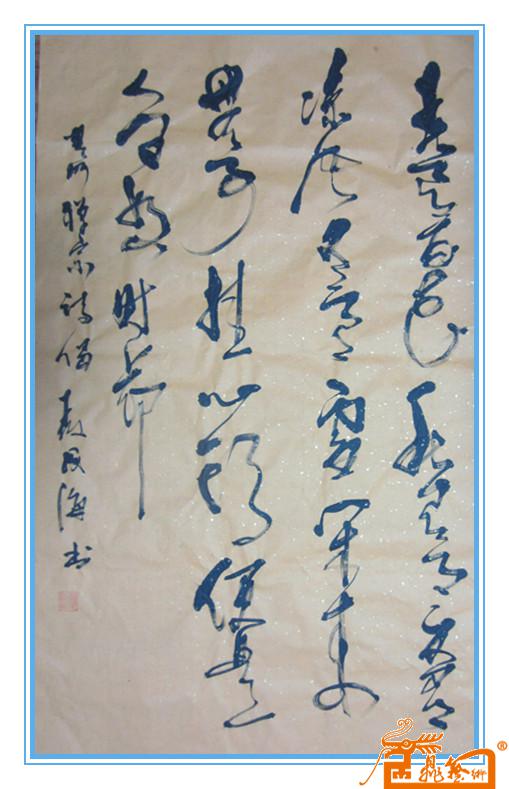 春有百花秋有月夏有
凉风冬有雪闲来
无事挂心头便是
人间好时节
禅宗诗偈 海书